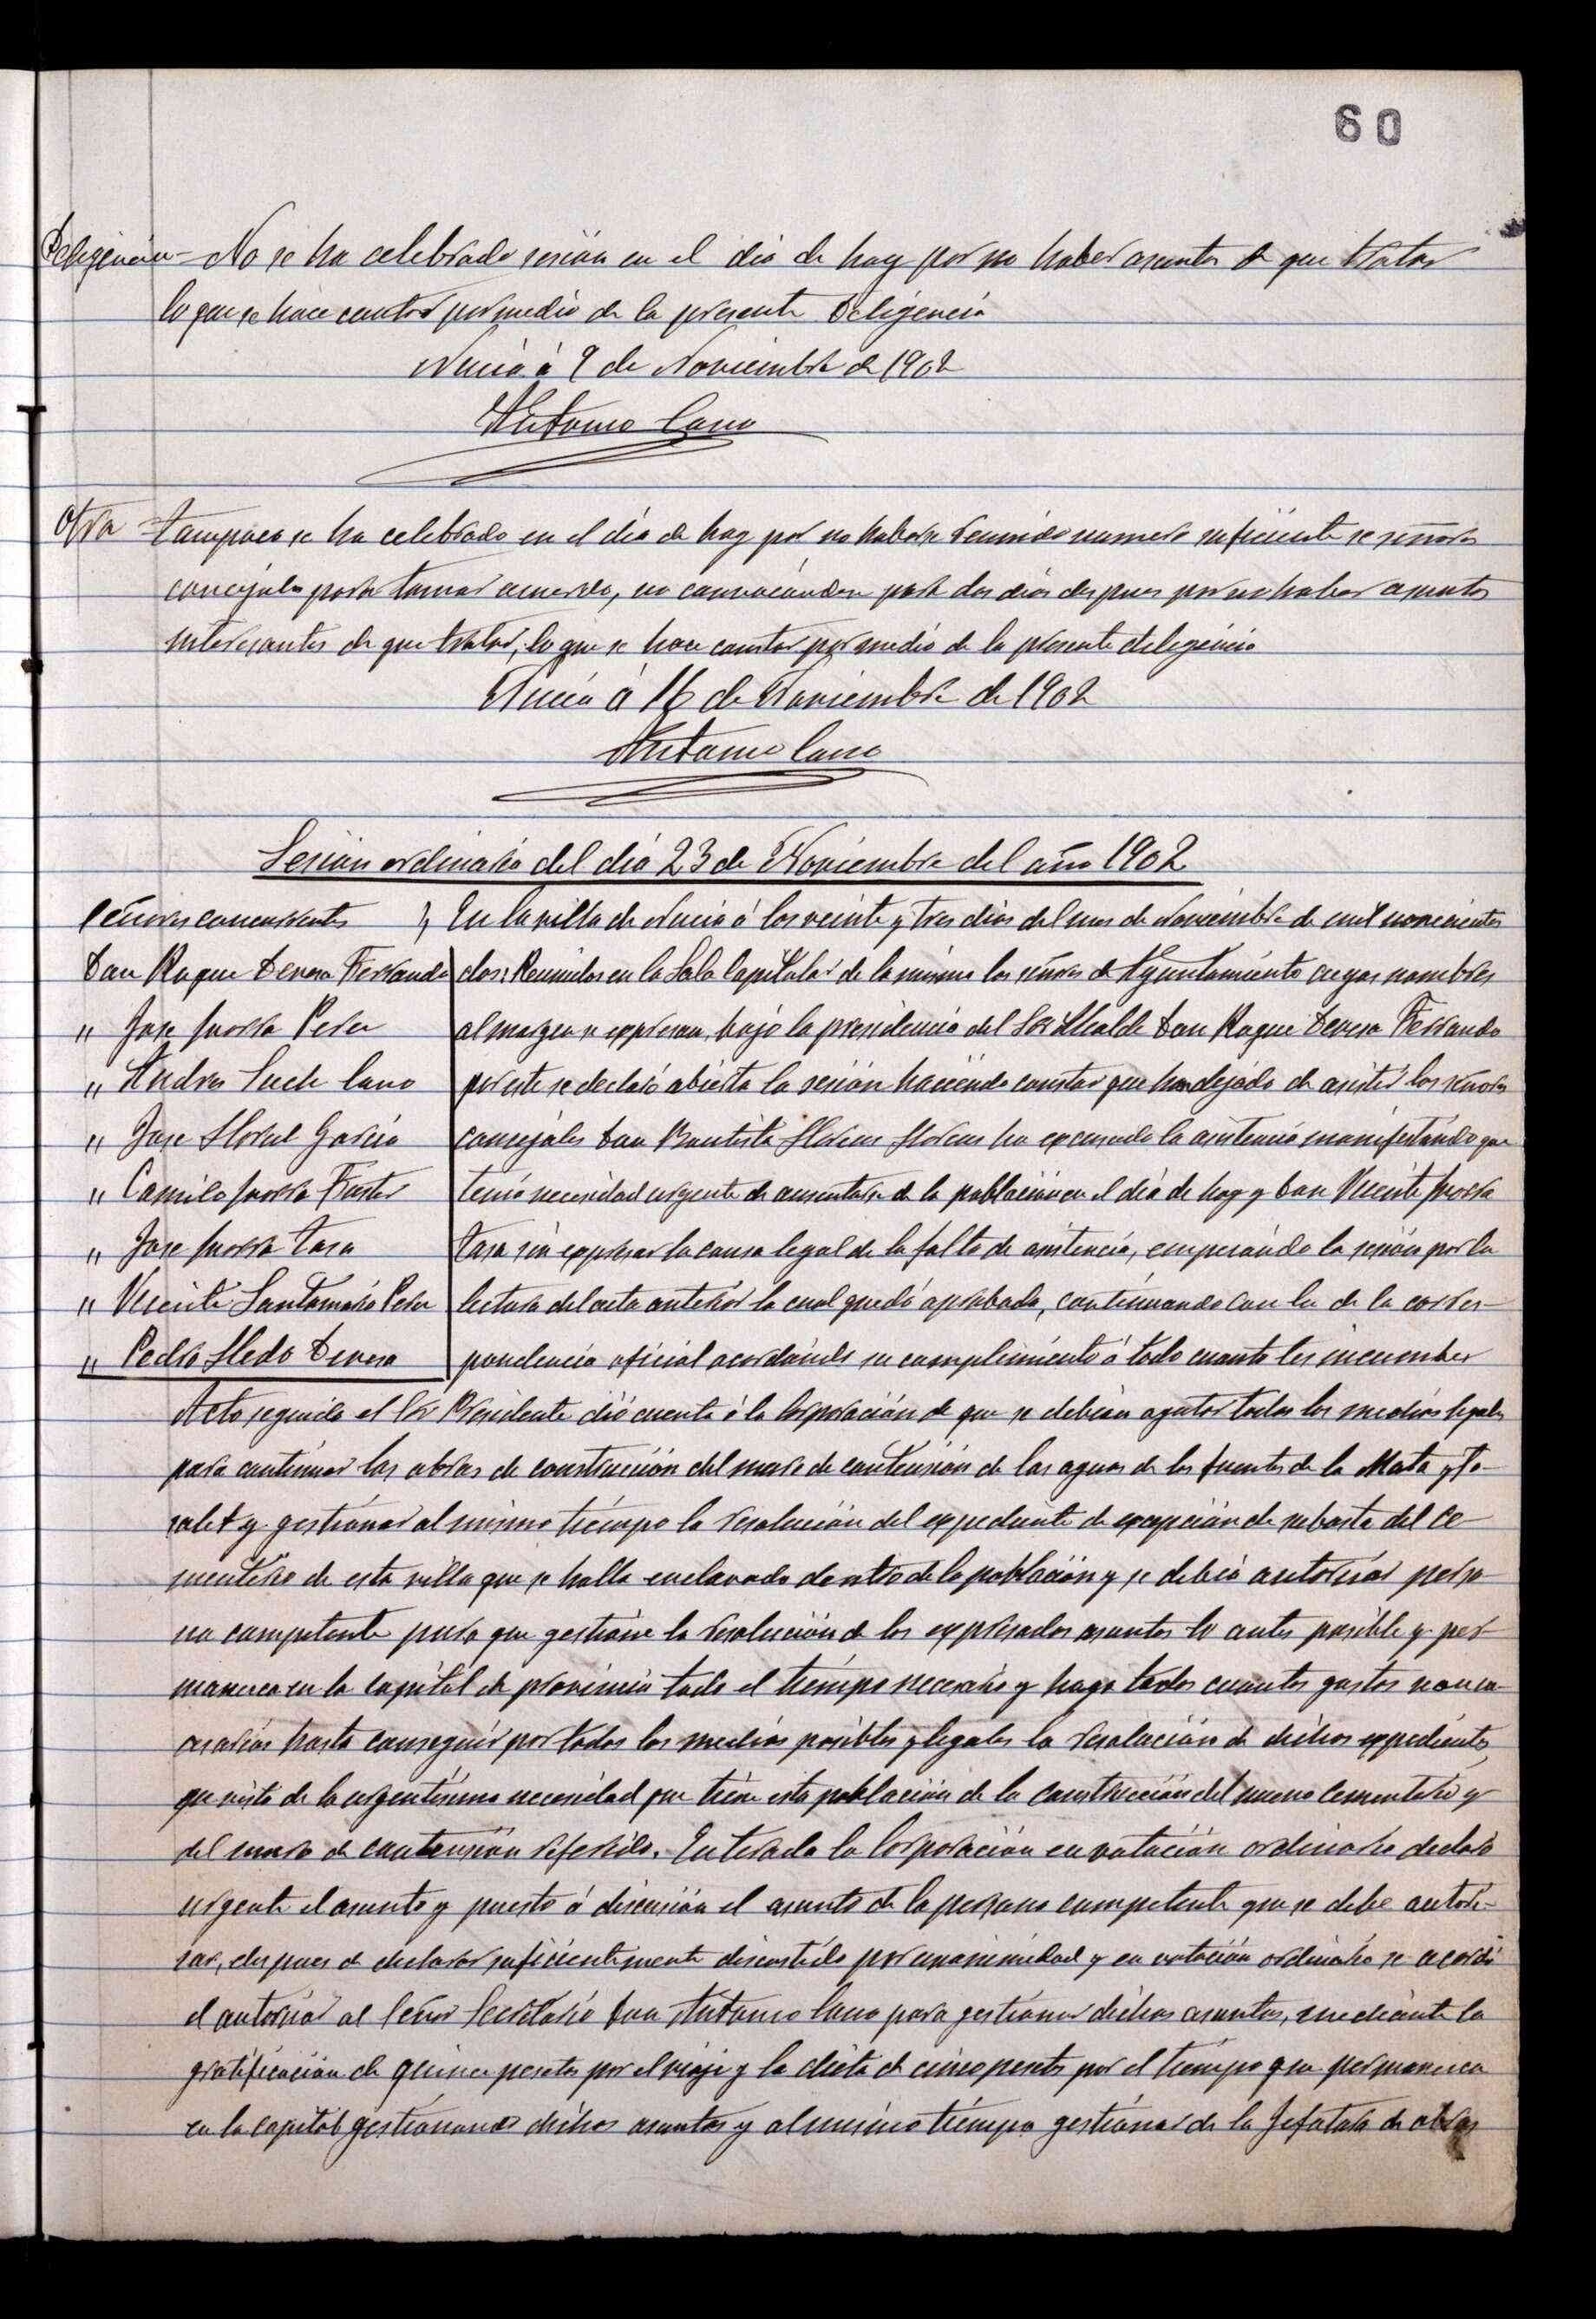 60
Deligencia - No se ha celebrado sesión en el día de hoy por no haber asuntos de que tratar
lo que se hace constar por medio de la presente Deligencia
Nucia á 9 de Noviembre de 1902
Antonio Cano
Otra - Tampoco se ha celebrado en el día de hoy por no haberse reunido numero suficiente se señores
concejales para tomar acuerdo, no convocandose para dos días despues por no haber asuntos
interesantes de que tratar, lo que se hace constar por medio de la presente deligencia
Nucia á 16 de Noviembre de 1902
Antonio Cano
Sesion ordinaria del día 23 de Noviembre del año 1902
Señores concurrentes
Don Roque Devesa Ferrando
" Jose Morra Perez
" Andres Such Cano
" Jose Lloret García
" Camilo Fuster
" Jose Tasa
" Vicente Santamaría Perez
" Pedro Lledo Devesa
En la villa de Nucia á los veinte y tres días del mes de Noviembre de mil novecientos
dos: Reunidos en la Sala Capitular de la misma los señores de Ayuntamiento cuyos nombres
al margen se expresan, bajo la presidencia del Sor Alcalde Don Roque Devesa Ferrando
por este se declaró abierta la sesión haciendo constar que han dejado de asistir los señores
concejales Don Bautista Llorens Llorens ha excusado la asistencia manifestando que
tenia necesidad urgente de ausentarse de la población en el día de hoy y Don Vicente
Tasa sin expresar la causa legal de la falta de asistencia, empezándo la sesión por la
lectura del acta anterior la cual quedó aprobada, continuando con la de la corres-
pondencia oficial acordándo su cumplimiento á todo cuanto les incumbe
Acto seguido el Sor Presidente dió cuenta á la Corporación de que se debían agotar todos los medios legales
para continuar las obras de construcción del muro de contensión de las aguas de las fuentes de la Mata y To-
salet y gestionar al mismo tiempo la resolución del expediente de excepción de subasta del Ce-
menterio de esta villa que se halla enclavado dentro de la población y se debía autorizar perso-
na competente para que gestione la resolución de los expresados asuntos lo antes posible y per-
manezca en la capital de provincia todo el tiempo necesario y haga todos cuantos gastos
hasta conseguir por todos los medios posibles y legales la resolución de dichos expedientes,
que visto de la urgentísima necesidad que tiene esta población de la construcción del nuevo Cementerio y
del muro de contensión referido. Enterada la Corporación en votación ordinaria declaró
urgente el asunto y puesto á discusión el asunto de la persona competente que se debe autori-
zar, despues de declarar suficientemente discutido por unanimidad y en votación ordinaria se acordó
el autorizar al Señor Secretario Don Antonio Cano para gestionar dichos asuntos, mediante la
gratificación de quince pesetas por el viaje y la dieta de cinco pesetas por el tiempo que permanezca
en la capital gestionando dichos asuntos y al mismo tiempo gestionar de la Jefatura de obras